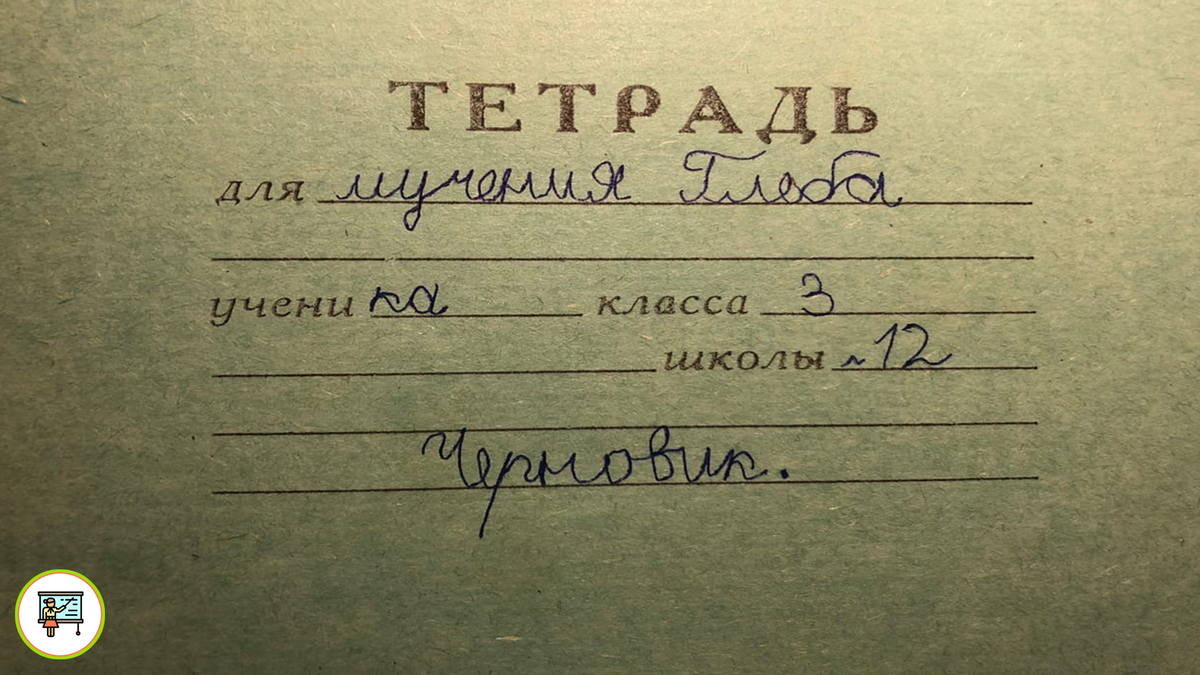 ТЕТРАДЬ
для мучения Глеба
ученика класса 3
школы №12
Черновик.